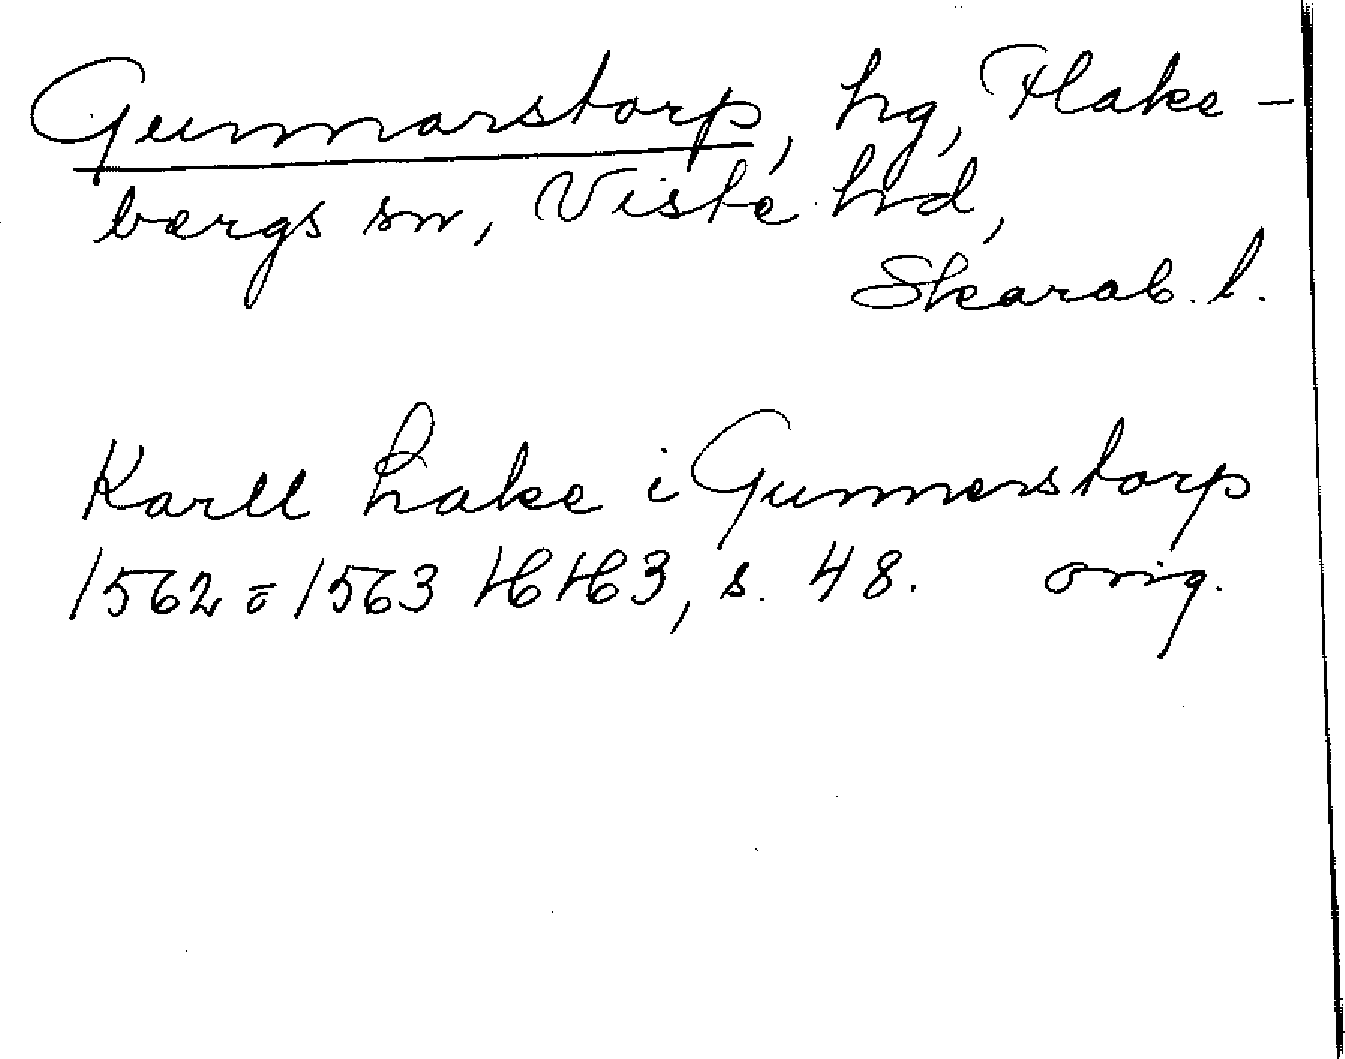 Gunnarstorp, hg, Flake-
bergs sn, Viste hd,
Skarab. l.
Karll Lake i Gunnerstorp
1562 = 1563 HH3, s. 48. orig.